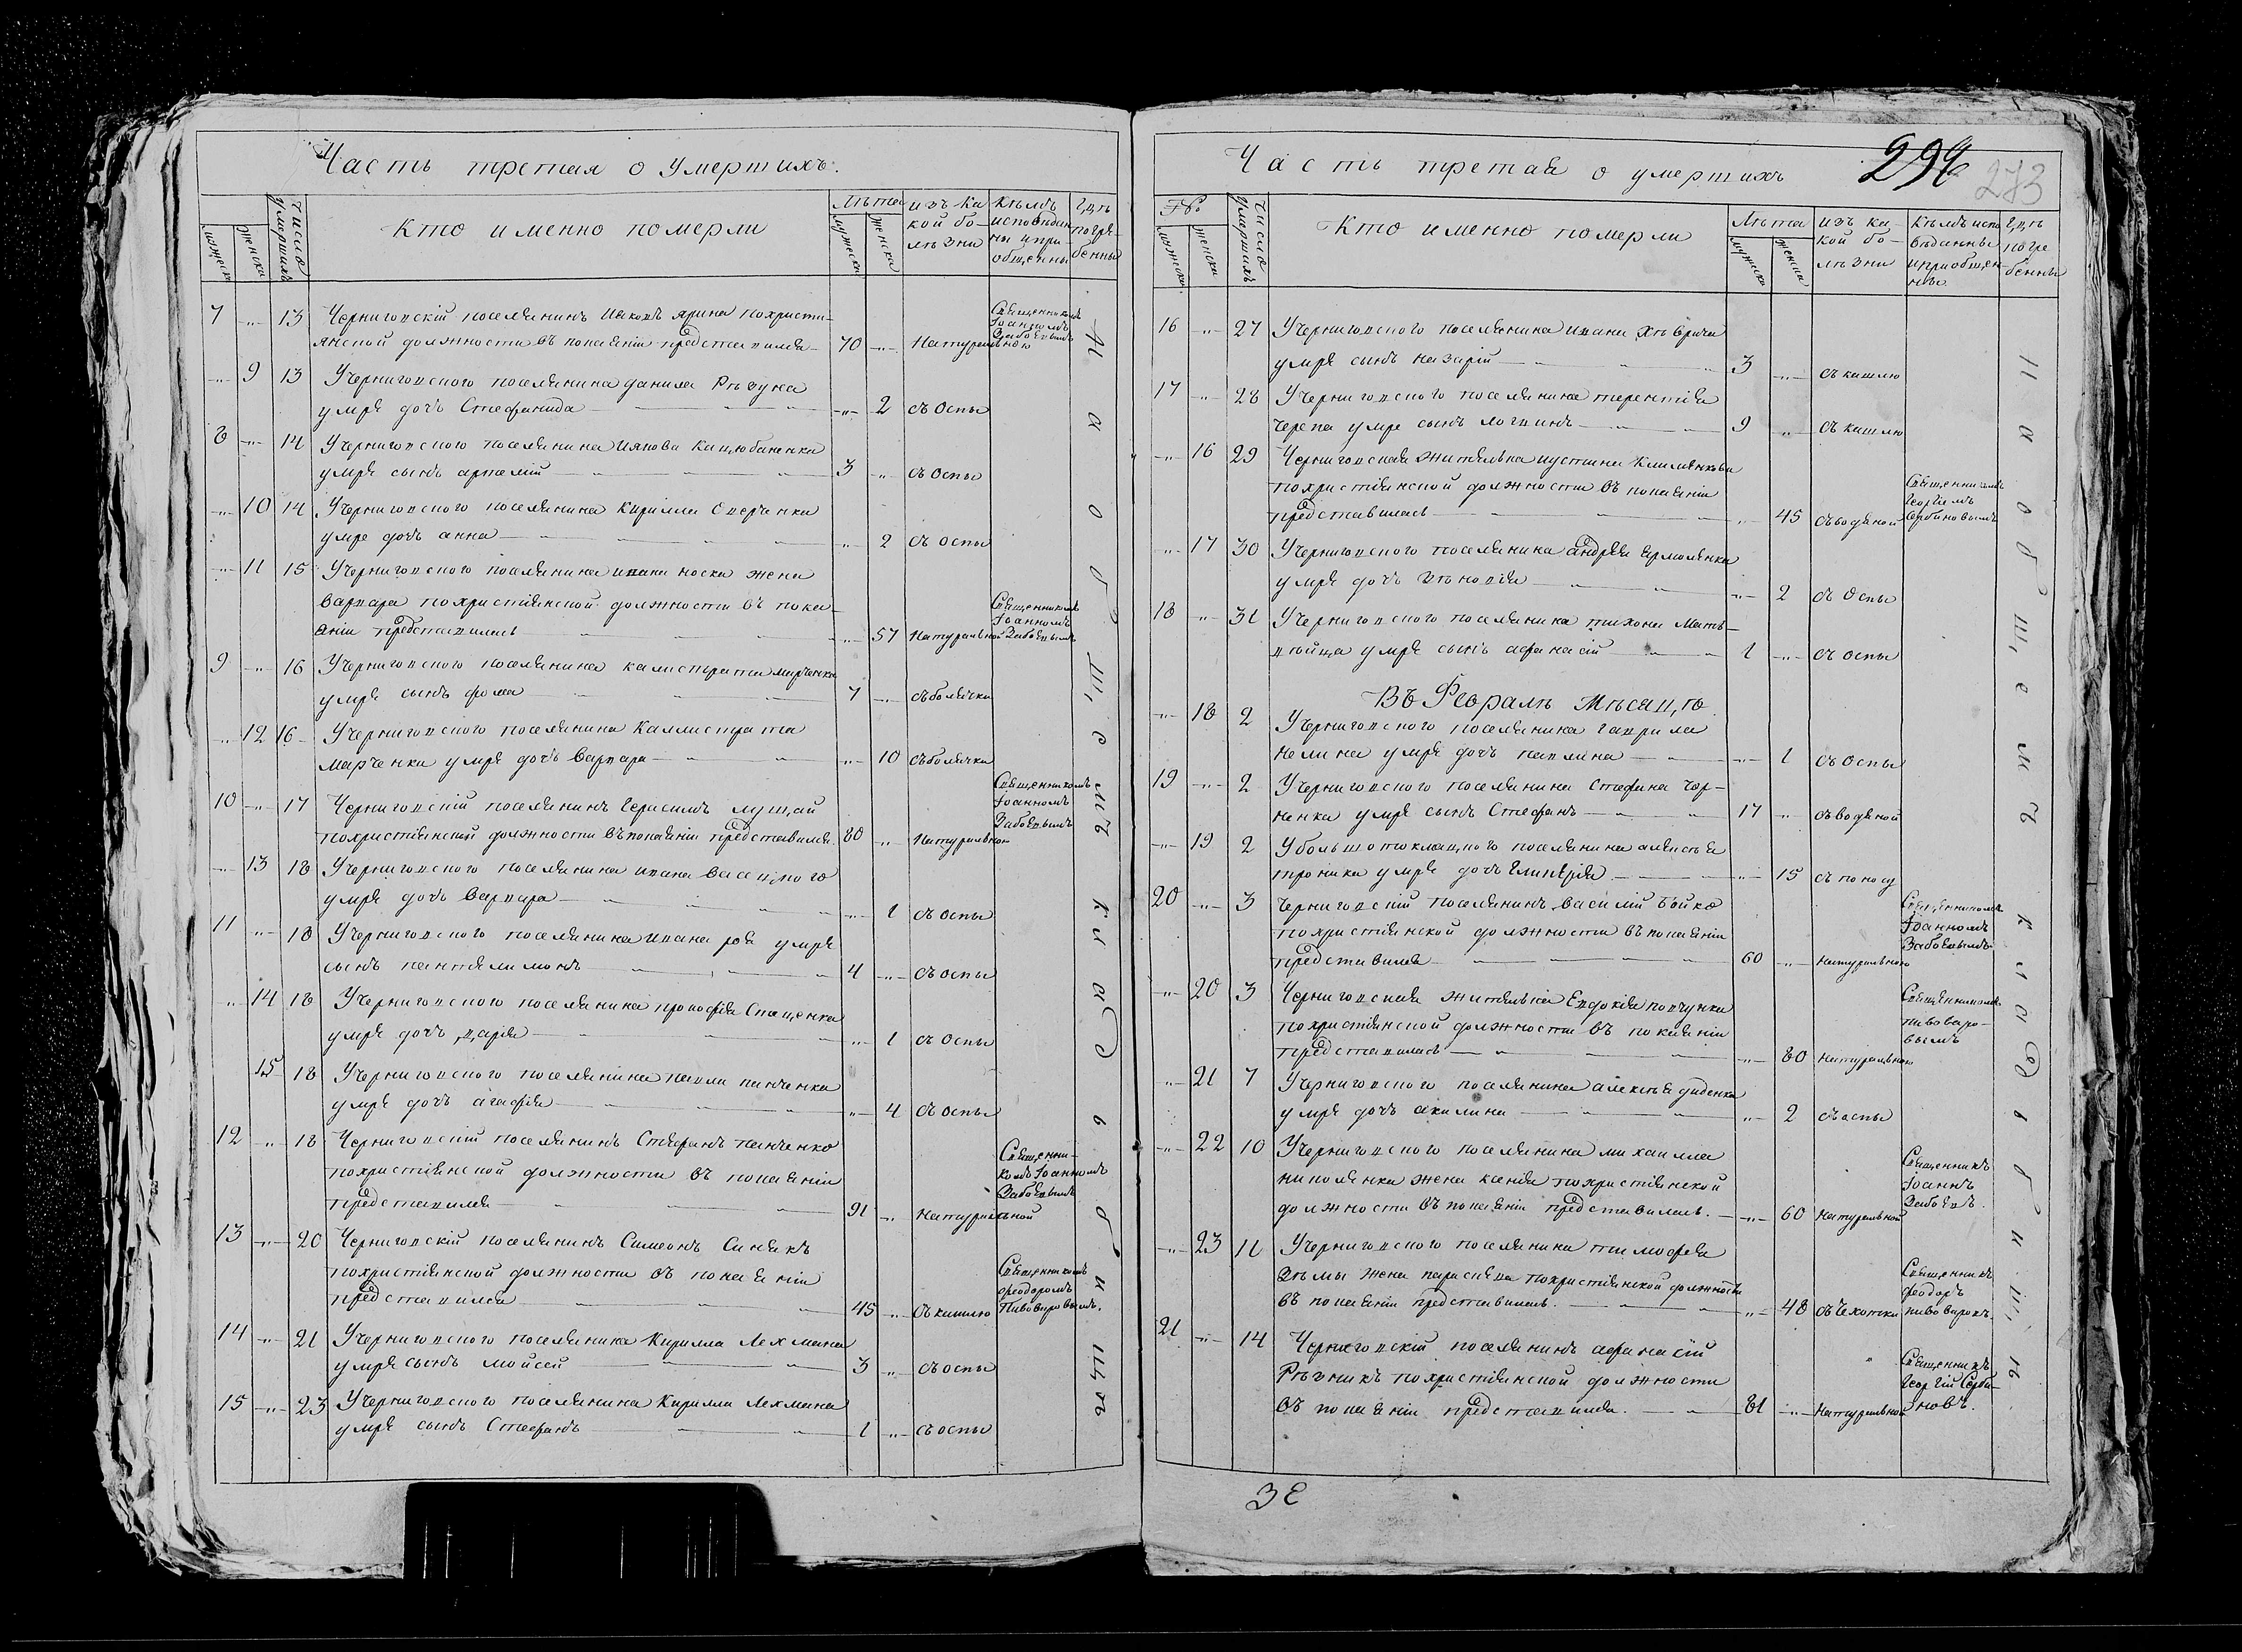 Часть третая о умершихъ.
мужеска
женска
число умершихъ
Кто именно померли
Лѣта
мужеска
женска
изъ ка
кой бо-
лѣзни
Кѣмъ
исповѣдан
ны и при-
общенны
Гдѣ
погре-
бенны
7 „ 13 Черниговскій поселянинъ Иаковъ ярина похристи-
янской должности въ покаяніи представился 70 „ Натуральною
Священникомъ
Іоанномъ
Забоевымъ
„ 9 13 Учерниговского поселянина данила Рѣзуна
умре дочь Стефанида „ 2 съ Оспы
8 „ 14 Учерниговского поселянина Иякова Кацюбаненка
умре сынъ 3 „ съ Оспы
„ 10 14 Учерниговского поселянина Кирилла
умре дочь анна „ 2 съ оспы
„ 11 15 Учерниговского поселянина ивана носка жена
варвара похристіянской должности въ пока-
яніи представилась „ 57 Натуральной
Священникомъ
Іоанномъ
Забоевымъ
9 „ 16 Учерниговского поселянина калистрата марченка
умре сынъ фома 7 „ съболячки
„ 12 16 Учерниговского поселянина Каллистрата
марченка умре дочь варвара „ 10 съболячки
10 „ 17 Черниговскій поселянинъ Герасимъ лущай
похристіянской должности въпокаяніи представился 80 „ Натуральною
Священникомъ
Іоанномъ
Забоевымъ
„ 13 18 Учерниговского поселянина ивана васецкого
умре дочь варвара „ 1 съ оспы
11 „ 18 Учерниговского поселянина ивана умре
сынъ пантелимонъ 4 „ съ оспы
„ 14 18 Учерниговского поселянина прокофія Спащенка
умре дочь дарія „ 1 съ оспы
15 18 Учерниговского поселянина павла панченка
умре дочь агафія „ 4 съ оспы
12 „ 18 Черниговскій поселянинъ Стефанъ панченко
похристіянской должности въ покаяніи
представился 91 „ Натуральной
Священни-
комъ Іоанномъ
Забоевымъ
13 „ 20 Черниговскій поселянинъ Симеонъ Синякъ
похристіянской должности въ покаяніи
представился 45 „ съкашлю
Священникомъ
феодоромъ
Пивоваровымъ.
14 „ 21 Учерниговского поселянина Кирилла Лехмана
умре сынъ мойсей 3 „ съ оспы
15 „ 23 Учерниговского поселянина Кирилла Лехмана
умре сынъ Стефанъ 1 „ съ оспы
На общемъ кладбищѣ
Часть третая о умершихъ
296
273
№
мужеска
женска
число умершихъ
Кто именно померли
Лѣта
мужеска
женска
изъ ка-
кой бо-
лѣзни
Кѣмъ испо
вѣданны
и приобщен-
ны
Гдѣ
погре
бенны
16 „ 27 Учерниговского поселянина ивана
умре сынъ назарій 3 „ съ кашлю
17 „ 28 Учерниговского поселянина терентія
черепа умре сынъ логвинъ 9 „ съ кашлю
„ 16 29 Черниговская жителька иустина
похристіянской должности въ покаяніи
представилась „ 45 съводяной
Священникомъ
Георгіемъ
Сербиновымъ
„ 17 30 Учерниговского поселянина андрея ермоленка
умре дочь „ 2 съ Оспы
18 „ 31 Учерниговского поселянина тихона Матв-
умре сынъ афанасій 1 „ съ оспы
Въ Февралѣ Мѣсяцѣ
„ 18 2 Учерниговского поселянина гаврила
умре дочь павлина „ 1 съ Оспы
19 „ 2 Учерниговского поселянина Стефана чор-
ненка умре сынъ Стефанъ 17 „ съводяной
„ 19 2 Убольшотокмацкого поселянина алексѣя
троника умре дочь „ 15 съ поносу
20 „ 3 Черниговскій поселянинъ василій бойко
похристіянской должности въ покаяніи
представился 60 „ Натуральною
Священникомъ
Іоанномъ
Забоевымъ
„ 20 3 Черниговская жителька Евдокія
похристіянской должности въ покаяніи
представилась „ 80 Натуральною
Священникомъ
пивоваро-
вымъ
„ 21 7 Учерниговского поселянина алексѣя диденка
умре дочь акилина „ 2 съоспы
„ 22 10 Учерниговского поселянина михаилла
жена ксенія похристіянской
должности въ покаяніи представилась. „ 60 Натуральной
Священникъ
Іоаннъ
Забоевъ.
„ 23 11 Учерниговского поселянина тимофея
жена параскева похристіянской должности
въ покаяніи представилась. „ 48 съчехотки
Священникъ
феодоръ
пивоваровъ.
21 „ 14 Черниговскій поселянинъ афанасій
Рѣзникъ похристіянской должности
въ покаяніи представился. 81 „ Натуральной
Священникъ
Георгій Серби-
новъ.
На общемъ кладбищѣ